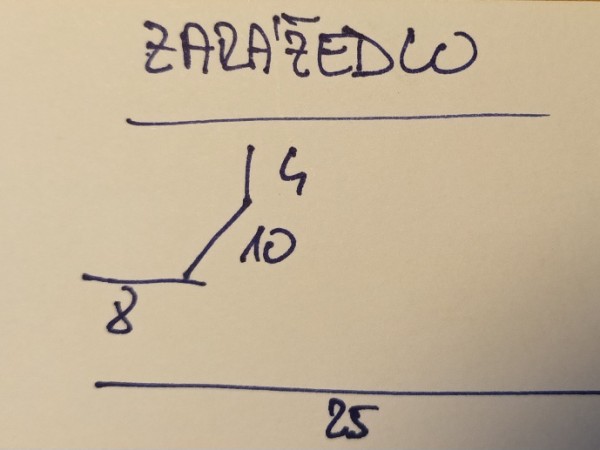 ZARÁŽEDLO
4
10
8
25